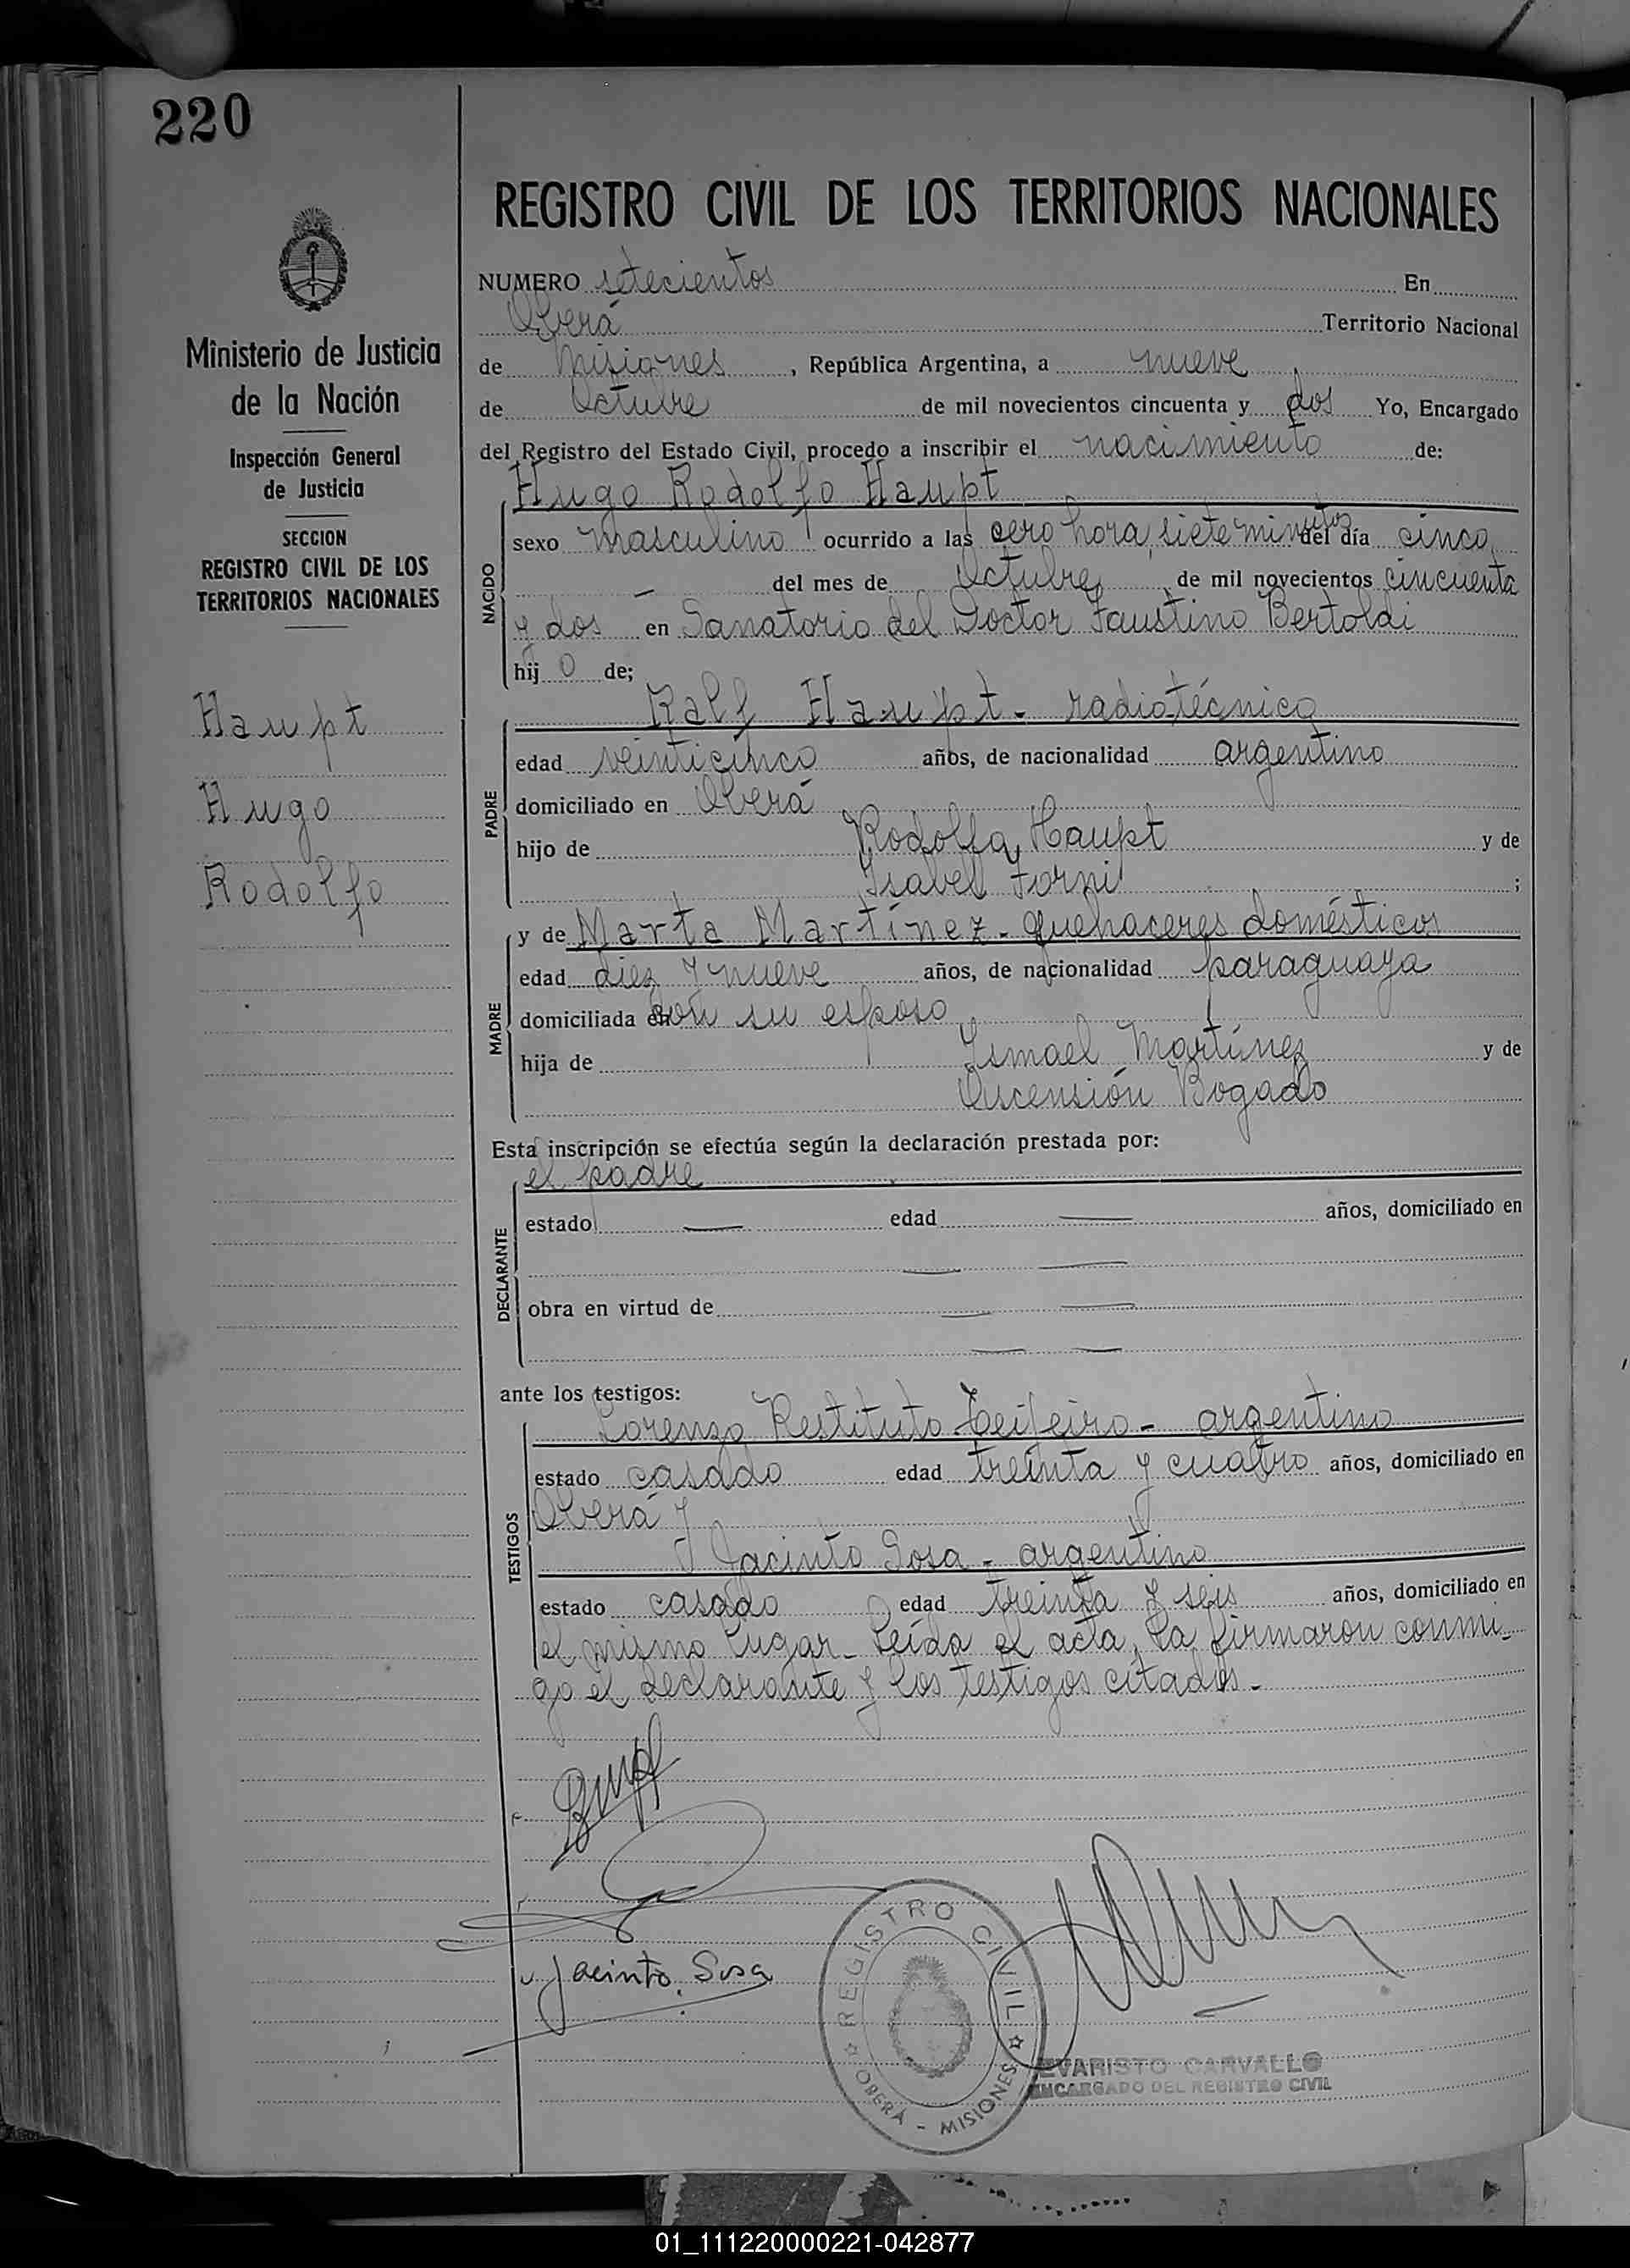 220
REGISTRO CIVIL DE LOS TERRITORIOS NACIONALES
Ministerio de Justicia
de la Nación
Inspección General
de Justicia
SECCION
REGISTRO CIVIL DE LOS
TERRITORIOS NACIONALES
Haupt
Hugo
Rodolfo
NUMERO setecientos En
Oberá Territorio Nacional
de Misiones, República Argentina, a nueve
de Octubre de mil novecientos cincuenta y dos Yo, Encargado
del Registro del Estado Civil, procedo a inscribir el nacimiento de:
Hugo Rodolfo Haupt
NACIDO
sexo masculino ocurrido a las cero hora, siete minutos del día cinco
— del mes de Octubre de mil novecientos cincuenta
y dos en Sanatorio del Doctor Faustino Bertoldi
hijo de;
Ralf Haupt - radiotécnico
PADRE
edad veinticinco años, de nacionalidad argentino
domiciliado en Oberá
hijo de Rodolfo Haupt y de
Isabel Forni ;
y de Marta Martínez - quehaceres domésticos
MADRE
edad diez y nueve años, de nacionalidad paraguaya
domiciliada en con su esposo
hija de Ismael Martínez y de
Ascensión Bogado
Esta inscripción se efectúa según la declaración prestada por:
el padre
DECLARANTE
estado — edad — años, domiciliado en
— —
obra en virtud de — —
— —
ante los testigos:
Lorenzo Restituto Teifeiro - argentino
TESTIGOS
estado casado edad treinta y cuatro años, domiciliado en
Oberá y
Jacinto Sosa - argentino
estado casado edad treinta y seis años, domiciliado en
el mismo lugar - Leída el acta, la firmaron conmi-
go el declarante y los testigos citados.-
Jacinto Sosa
REGISTRO CIVIL
OBERÁ - MISIONES
EVARISTO CARVALLO
ENCARGADO DEL REGISTRO CIVIL
01_111220000221-042877